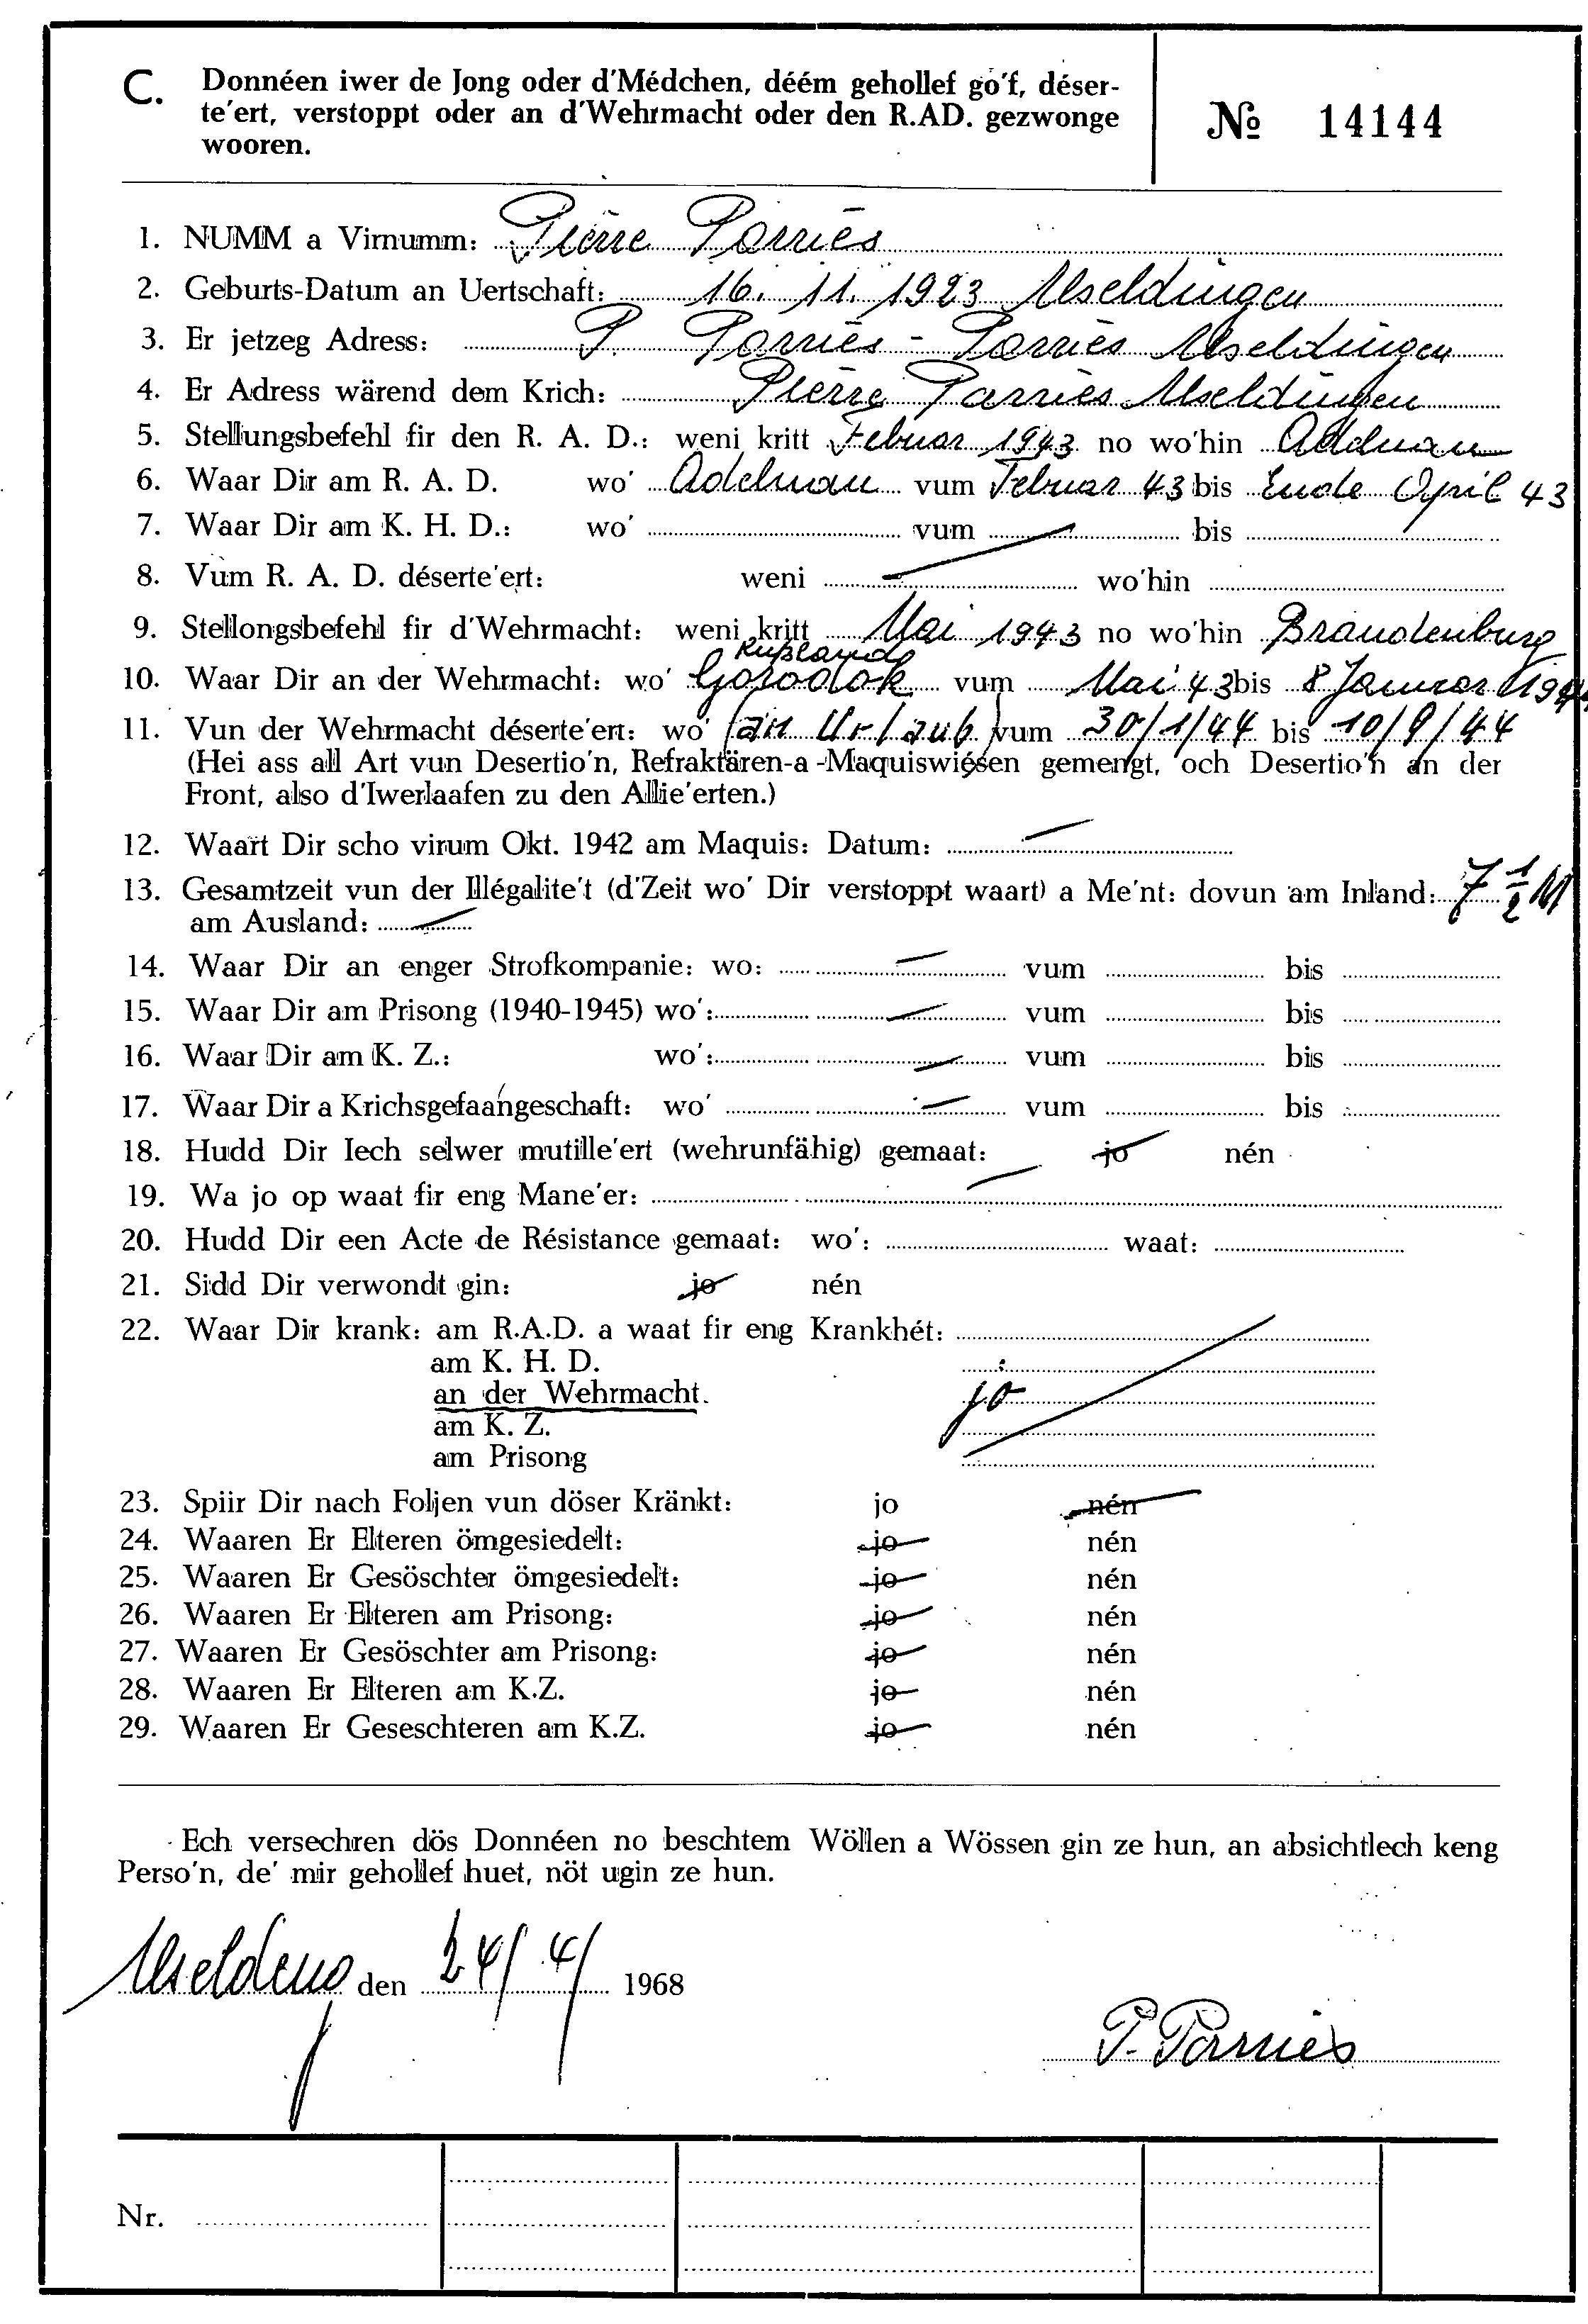 C. Donnéen iwer de Jong oder d'Médchen, déém gehollef go'f, déser-
te'ert, verstoppt oder an d'Wehrmacht oder den R.AD. gezwonge
wooren.
№ 14144
1. NUMM a Virnumm: Pierre Parriès
2. Geburts-Datum an Uertschaft: 16. 11. 1923 Useldingen
3. Er jetzeg Adress: P. Parriès - Parriès Useldingen
4. Er Adress wärend dem Krich: Pierre Parriès Useldingen
5. Stellungsbefehl fir den R. A. D.: weni kritt Februar 1943 no wo'hin Adelnau
6. Waar Dir am R. A. D. wo' Adelnau vum Februar 43 bis Ende April 43
7. Waar Dir am K. H. D.: wo' vum bis
8. Vum R. A. D. déserte'ert: weni wo'hin
9. Stellongsbefehl fir d'Wehrmacht: weni kritt Mai 1943 no wo'hin Brandenburg
Rußland
10. Waar Dir an der Wehrmacht: wo' Gorodok vum Mai 43 bis 8 Januar 1944
11. Vun der Wehrmacht déserte'ert: wo' (an Urlaub) vum 30/1/44 bis 10/9/44
(Hei ass all Art vun Desertio'n, Refraktären-a -Maquiswiésen gemengt, och Desertio'n an der
Front, also d'Iwerlaafen zu den Allie'erten.)
12. Waart Dir scho virum Okt. 1942 am Maquis: Datum:
13. Gesamtzeit vun der Illégalite't (d'Zeit wo' Dir verstoppt waart) a Me'nt: dovun am Inland: 7 1/2 M
am Ausland:
14. Waar Dir an enger Strofkompanie: wo: vum bis
15. Waar Dir am Prisong (1940-1945) wo': vum bis
16. Waar Dir am K. Z.: wo': vum bis
17. Waar Dir a Krichsgefaangeschaft: wo' vum bis
18. Hudd Dir Iech selwer mutille'ert (wehrunfähig) gemaat: jo nén
19. Wa jo op waat fir eng Mane'er:
20. Hudd Dir een Acte de Résistance gemaat: wo': waat:
21. Sidd Dir verwondt gin: jo nén
22. Waar Dir krank: am R.A.D. a waat fir eng Krankhét:
am K. H. D.
an der Wehrmacht. jo
am K. Z.
am Prisong
23. Spiir Dir nach Foljen vun döser Kränkt: jo nén
24. Waaren Er Elteren ömgesiedelt: jo nén
25. Waaren Er Gesöschter ömgesiedelt: jo nén
26. Waaren Er Elteren am Prisong: jo nén
27. Waaren Er Gesöschter am Prisong: jo nén
28. Waaren Er Elteren am K.Z. jo nén
29. Waaren Er Geseschteren am K.Z. jo nén
Ech versechren dös Donnéen no beschtem Wöllen a Wössen gin ze hun, an absichtlech keng
Perso'n, de' mir gehollef huet, nöt ugin ze hun.
Useldeng den 24/4/ 1968
P. Parriès
Nr.